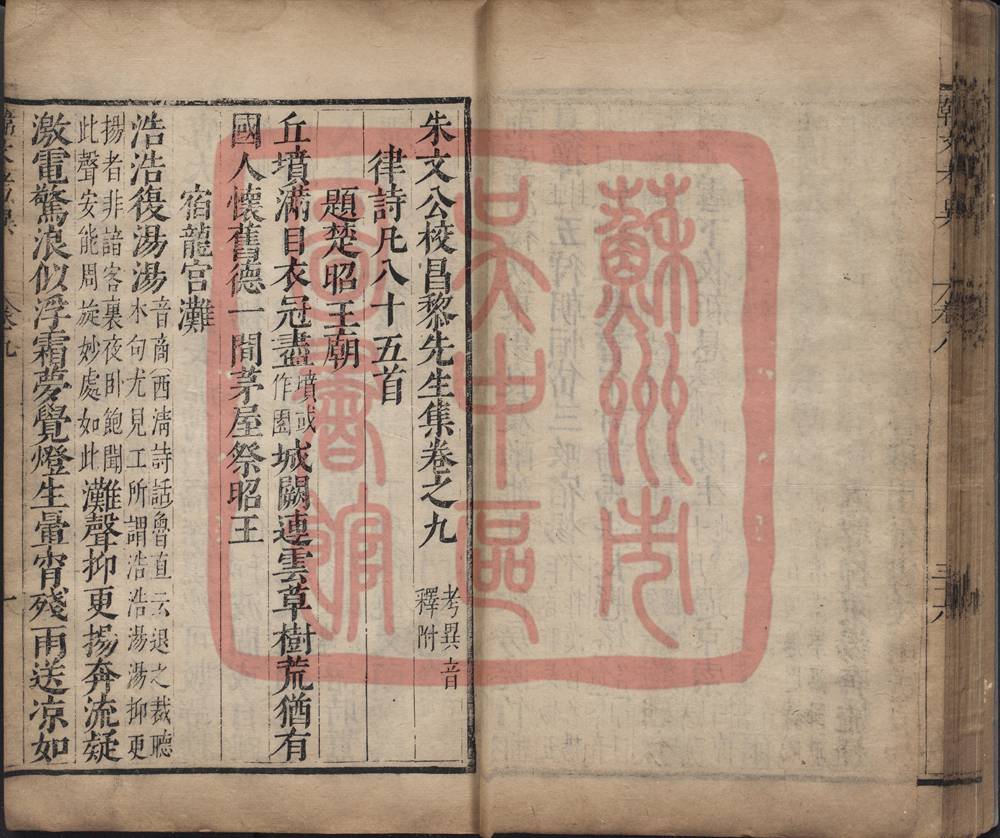 蘇州市
吳中區
圖書館
朱文公校昌黎先生集卷之九 考異音釋附
律詩凡八十五首
題楚昭王廟
丘墳滿目衣冠盡墳或作園城闕連雲草樹荒猶有
國人懷舊德一間茅屋祭昭王
宿龍宮灘
浩浩復湯湯音商西淸詩話魯直云退之裁聽水句尤見工所謂浩浩湯湯抑更
揚者非諳客裏夜臥飽聞此聲安能周旋妙處如此灘聲抑更揚奔流疑
激電驚浪似浮霜夢覺燈生暈宵殘雨送凉如
卷九 一